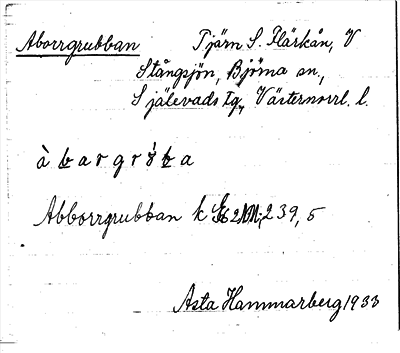 Aborrgrubban Tjärn S. Flärkån, V
Stångsjön, Björna sn.,
Själevads tg, Västernorrl. l.
Abborrgrubban k 239,5
Asta Hammarberg 1933